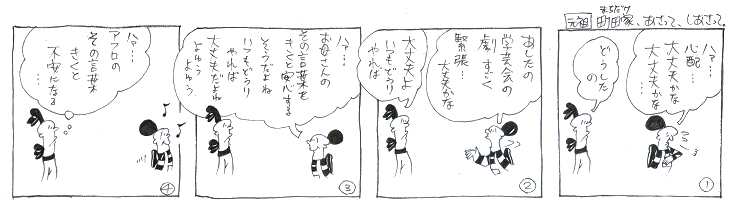 まちだけ
元祖 町田家、あさって、しあさって。
ハァ…
心配…
大丈夫かな
大丈夫かな
…
どうした
の
①
あしたの
学芸会の
劇 すごく
緊張…
大丈夫かな
大丈夫よ
いつもどうり
やれば
②
ハァ…
お母さんの
その言葉を
きくと安心する
そうだよね
いつもどうり
やれば
大丈夫だよね
よゆう
よゆう
③
ハァ…
アフロの
その言葉
きくと
不安になる
…
④